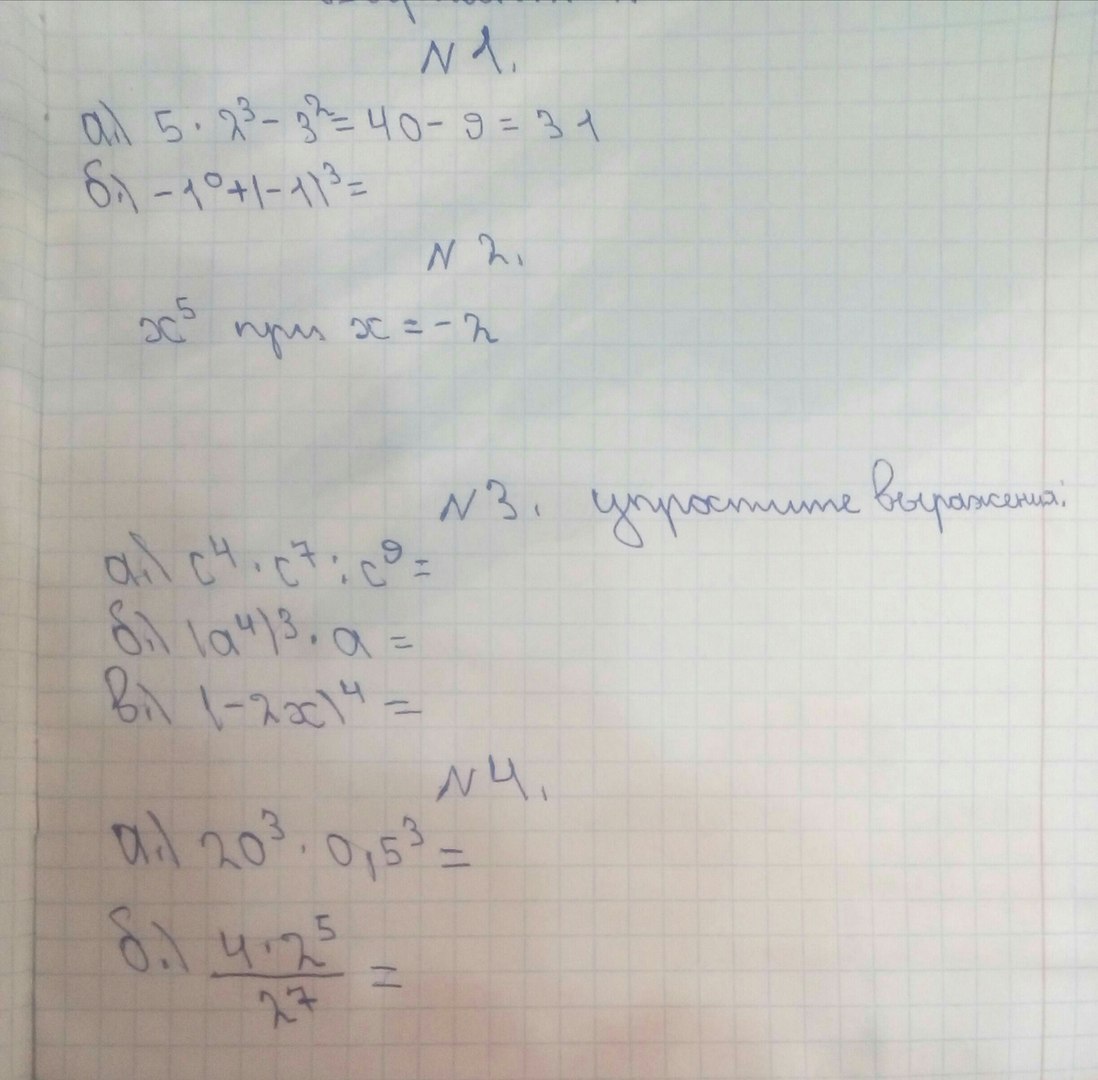 N 1.
а.) 5 · 2³ - 3² = 40 - 9 = 31
б.) -1⁰ + (-1)³ =
N 2.
x⁵ при x = -2
N 3. упростите выражения:
а.) c⁴ · c⁷ : c⁹ =
б.) (a⁴)³ · a =
в.) (-2x)⁴ =
N 4.
а.) 20³ · 0,5³ =
б.) 4 · 2⁵ / 2⁷ =